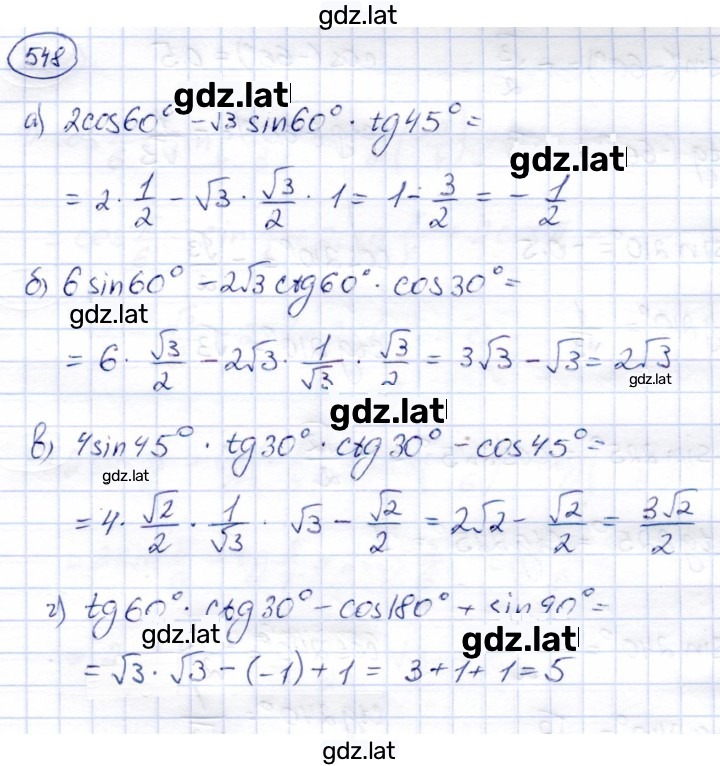 gdz.lat
548
gdz.lat
а) 2cos60° - √3 sin60° · tg45° =
gdz.lat
= 2 · 1/2 - √3 · √3/2 · 1 = 1 - 3/2 = - 1/2
б) 6 sin60° - 2√3 ctg60° · cos30° =
gdz.lat
= 6 · √3/2 - 2√3 · 1/√3 · √3/2 = 3√3 - √3 = 2√3
gdz.lat
gdz.lat
в) 4sin45° · tg30° · ctg30° - cos45° =
gdz.lat
= 4 · √2/2 · 1/√3 · √3 - √2/2 = 2√2 - √2/2 = 3√2/2
г) tg60° · ctg30° - cos180° + sin90° =
gdz.lat
gdz.lat
= √3 · √3 - (-1) + 1 = 3 + 1 + 1 = 5
gdz.lat